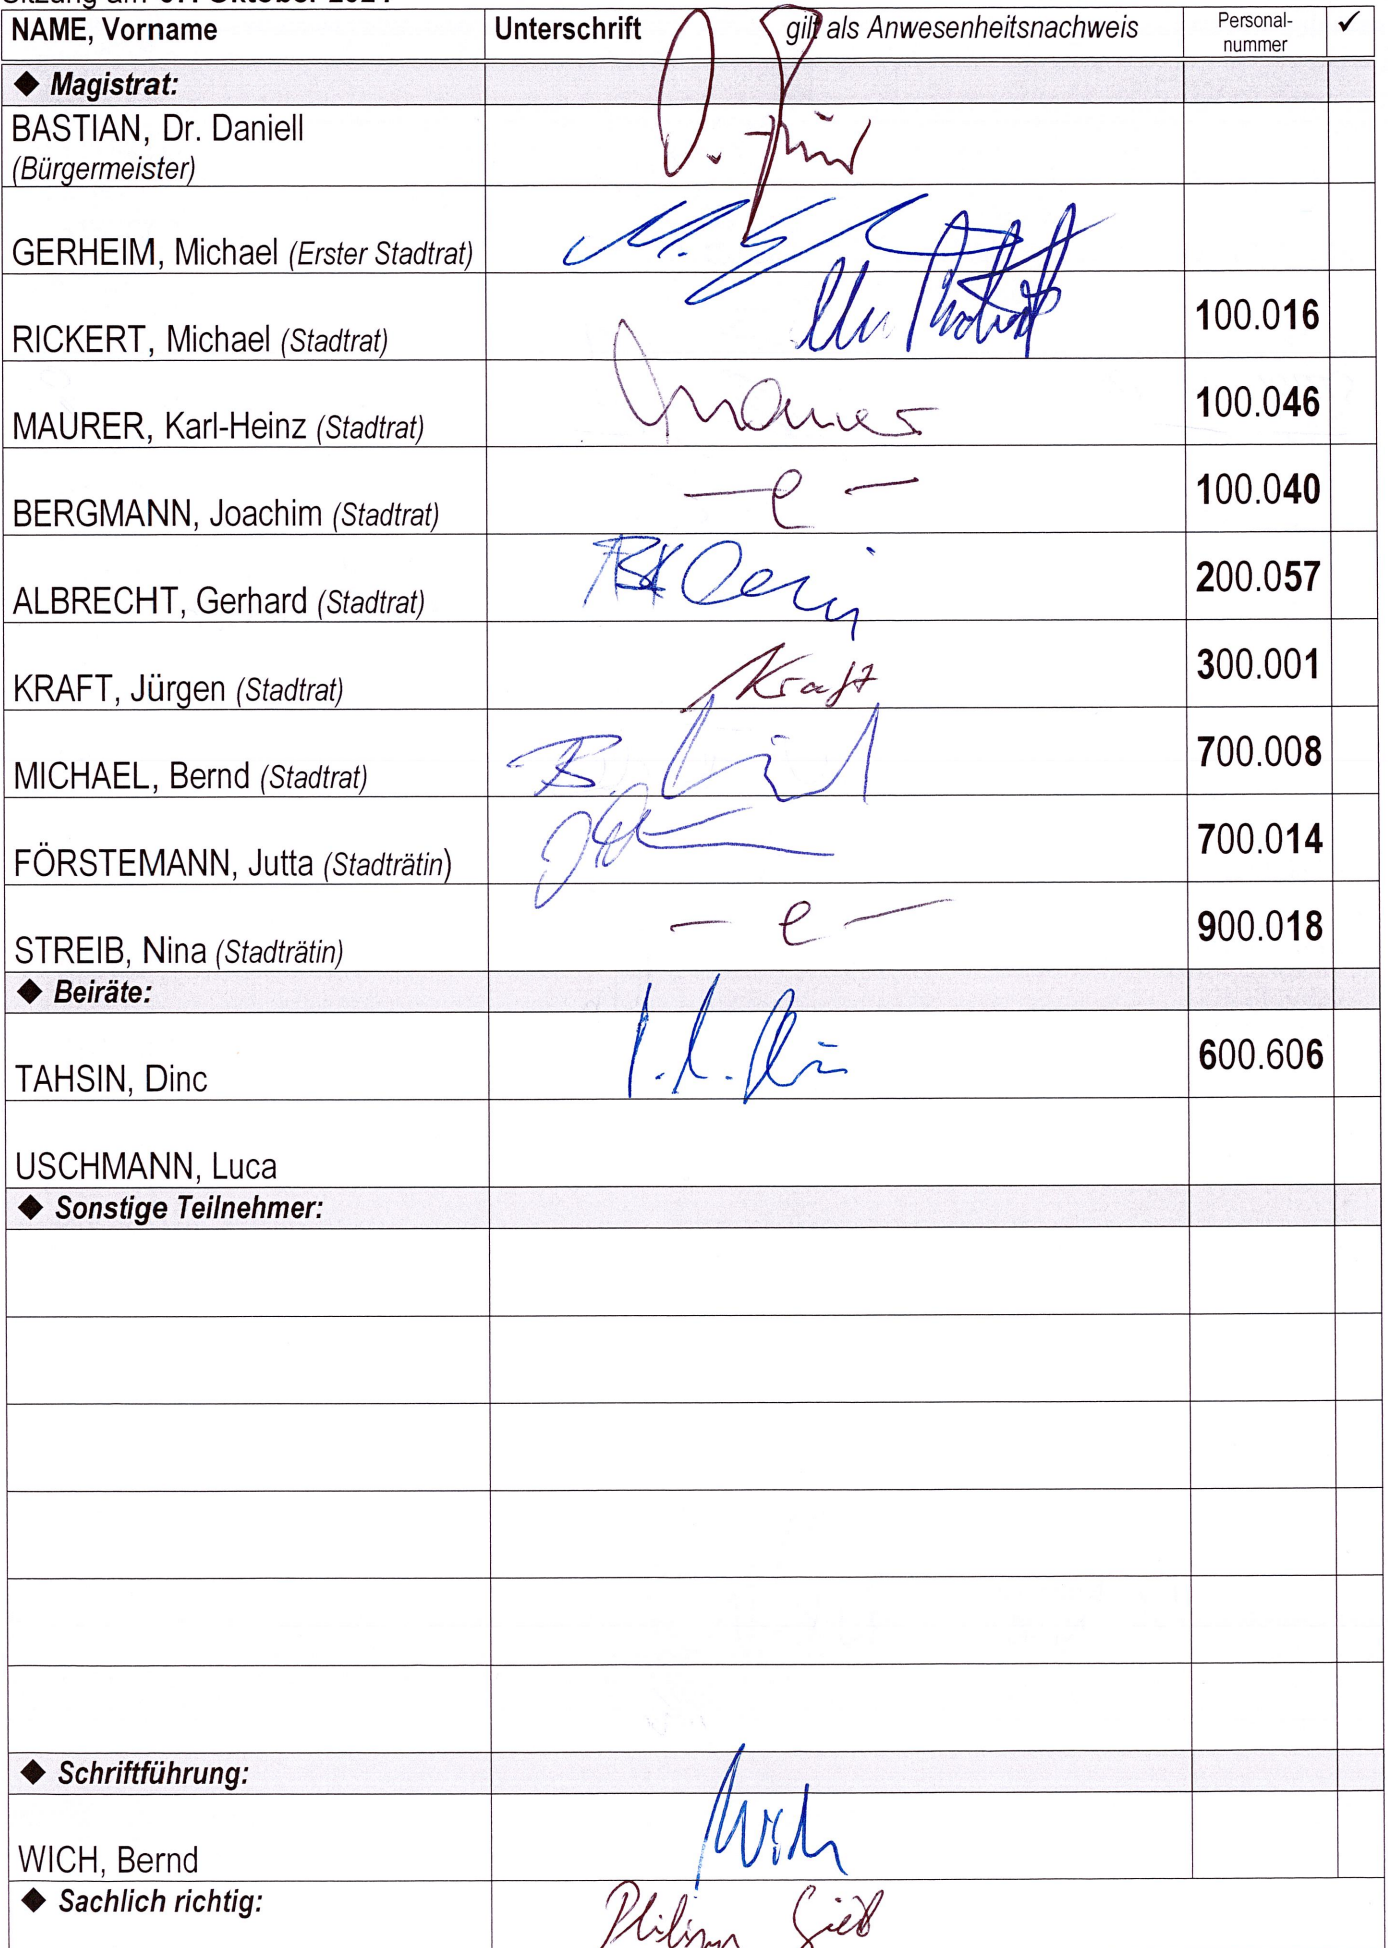 NAME, Vorname Unterschrift gilt als Anwesenheitsnachweis Personal-nummer ✓
◆ Magistrat:
BASTIAN, Dr. Daniell
(Bürgermeister)
GERHEIM, Michael (Erster Stadtrat)
RICKERT, Michael (Stadtrat) 100.016
MAURER, Karl-Heinz (Stadtrat) Maurer 100.046
BERGMANN, Joachim (Stadtrat) — e — 100.040
ALBRECHT, Gerhard (Stadtrat) 200.057
KRAFT, Jürgen (Stadtrat) Kraft 300.001
MICHAEL, Bernd (Stadtrat) 700.008
FÖRSTEMANN, Jutta (Stadträtin) 700.014
STREIB, Nina (Stadträtin) — e — 900.018
◆ Beiräte:
TAHSIN, Dinc 600.606
USCHMANN, Luca
◆ Sonstige Teilnehmer:
◆ Schriftführung:
WICH, Bernd Wich
◆ Sachlich richtig: